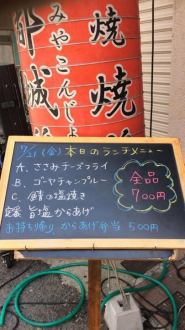 みやこんじょ
都城
焼
焼
7/21(金) 本日のランチメニュー
A. ささみチーズフライ
B. ゴーヤチャンプルー
C. 鯖の塩焼き
定番 旨塩からあげ
お持ち帰り からあげ弁当 500円
全品
700円